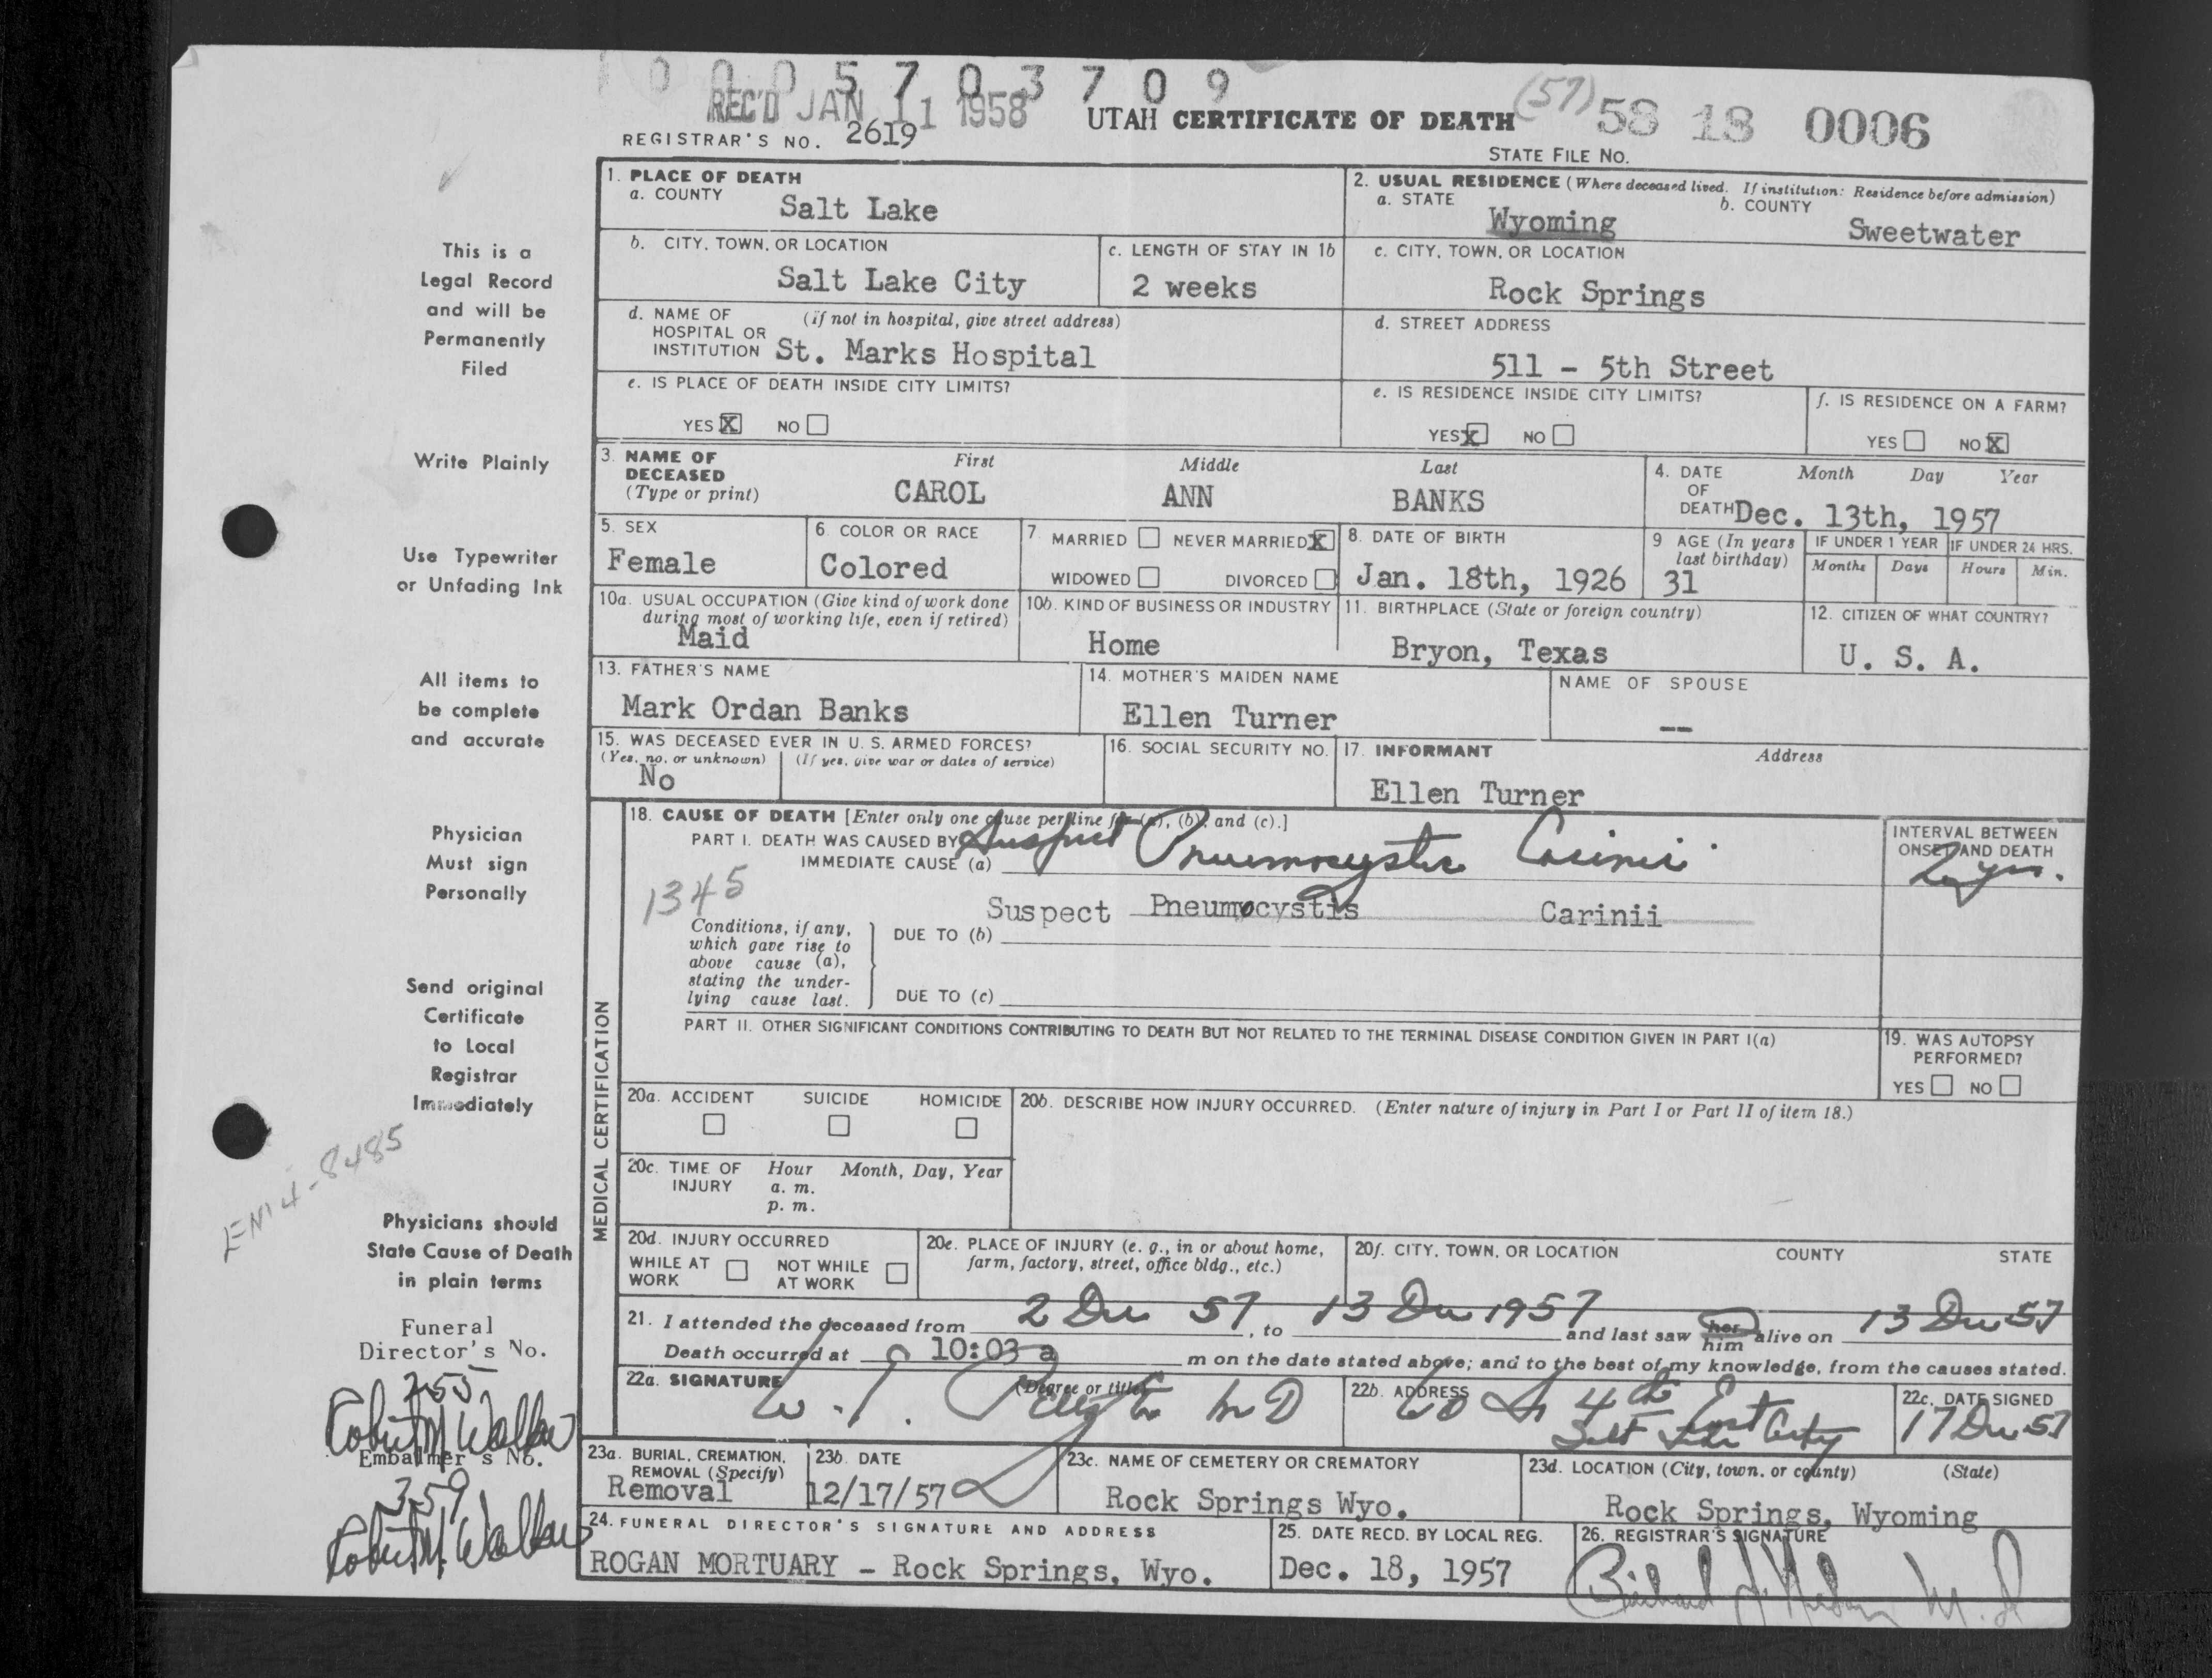 0 0 0 5 7 0 3 7 0 9
REC'D JAN 11 1958
UTAH CERTIFICATE OF DEATH (57) 58 18 0006
REGISTRAR'S NO. 2619
STATE FILE NO.
This is a
Legal Record
and will be
Permanently
Filed
Write Plainly
Use Typewriter
or Unfading Ink
All items to
be complete
and accurate
Physician
Must sign
Personally
Send original
Certificate
to Local
Registrar
Immediately
Physicians should
State Cause of Death
in plain terms
Funeral
Director's No.
255
Robert M. Walker
Embalmer's No.
359
Robert M. Walker
1. PLACE OF DEATH
a. COUNTY
Salt Lake
2. USUAL RESIDENCE (Where deceased lived. If institution: Residence before admission)
a. STATE
Wyoming
b. COUNTY
Sweetwater
b. CITY, TOWN, OR LOCATION
Salt Lake City
c. LENGTH OF STAY IN 1b
2 weeks
c. CITY, TOWN, OR LOCATION
Rock Springs
d. NAME OF (if not in hospital, give street address)
HOSPITAL OR
INSTITUTION St. Marks Hospital
d. STREET ADDRESS
511 - 5th Street
e. IS PLACE OF DEATH INSIDE CITY LIMITS?
YES X NO
e. IS RESIDENCE INSIDE CITY LIMITS?
YES X NO
f. IS RESIDENCE ON A FARM?
YES NO X
3. NAME OF
DECEASED
(Type or print)
First Middle Last
CAROL ANN BANKS
4. DATE Month Day Year
OF
DEATH Dec. 13th, 1957
5. SEX
Female
6. COLOR OR RACE
Colored
7 MARRIED NEVER MARRIED X
WIDOWED DIVORCED
8. DATE OF BIRTH
Jan. 18th, 1926
9 AGE (In years
last birthday)
31
IF UNDER 1 YEAR
Months Days
IF UNDER 24 HRS.
Hours Min.
10a. USUAL OCCUPATION (Give kind of work done
during most of working life, even if retired)
Maid
10b. KIND OF BUSINESS OR INDUSTRY
Home
11. BIRTHPLACE (State or foreign country)
Bryon, Texas
12. CITIZEN OF WHAT COUNTRY?
U. S. A.
13. FATHER'S NAME
Mark Ordan Banks
14. MOTHER'S MAIDEN NAME
Ellen Turner
NAME OF SPOUSE
--
15. WAS DECEASED EVER IN U. S. ARMED FORCES?
(Yes, no, or unknown) (If yes, give war or dates of service)
No
16. SOCIAL SECURITY NO.
17. INFORMANT Address
Ellen Turner
MEDICAL CERTIFICATION
18. CAUSE OF DEATH [Enter only one cause per line for (a), (b), and (c).]
PART I. DEATH WAS CAUSED BY
IMMEDIATE CAUSE (a) Suspect Pneumocystis Carinii
INTERVAL BETWEEN
ONSET AND DEATH
2 yrs.
1345
Suspect Pneumocystis Carinii
Conditions, if any,
which gave rise to
above cause (a),
stating the under-
lying cause last.
DUE TO (b)
DUE TO (c)
PART II. OTHER SIGNIFICANT CONDITIONS CONTRIBUTING TO DEATH BUT NOT RELATED TO THE TERMINAL DISEASE CONDITION GIVEN IN PART I(a)
19. WAS AUTOPSY
PERFORMED?
YES NO
20a. ACCIDENT SUICIDE HOMICIDE
20b. DESCRIBE HOW INJURY OCCURRED. (Enter nature of injury in Part I or Part II of item 18.)
20c. TIME OF Hour Month, Day, Year
INJURY a. m.
p. m.
20d. INJURY OCCURRED
WHILE AT NOT WHILE
WORK AT WORK
20e. PLACE OF INJURY (e. g., in or about home,
farm, factory, street, office bldg., etc.)
20f. CITY, TOWN, OR LOCATION COUNTY STATE
21. I attended the deceased from 2 Dec 57, to 13 Dec 1957 and last saw her him alive on 13 Dec 57
Death occurred at 10:03 a m on the date stated above; and to the best of my knowledge, from the causes stated.
22a. SIGNATURE (Degree or title)
W. J. M D
22b. ADDRESS
60 So 4th East
Salt Lake City
22c. DATE SIGNED
17 Dec 57
23a. BURIAL, CREMATION,
REMOVAL (Specify)
Removal
23b. DATE
12/17/57
23c. NAME OF CEMETERY OR CREMATORY
Rock Springs Wyo.
23d. LOCATION (City, town, or county) (State)
Rock Springs, Wyoming
24. FUNERAL DIRECTOR'S SIGNATURE AND ADDRESS
ROGAN MORTUARY - Rock Springs, Wyo.
25. DATE RECD. BY LOCAL REG.
Dec. 18, 1957
26. REGISTRAR'S SIGNATURE
Richard M.D